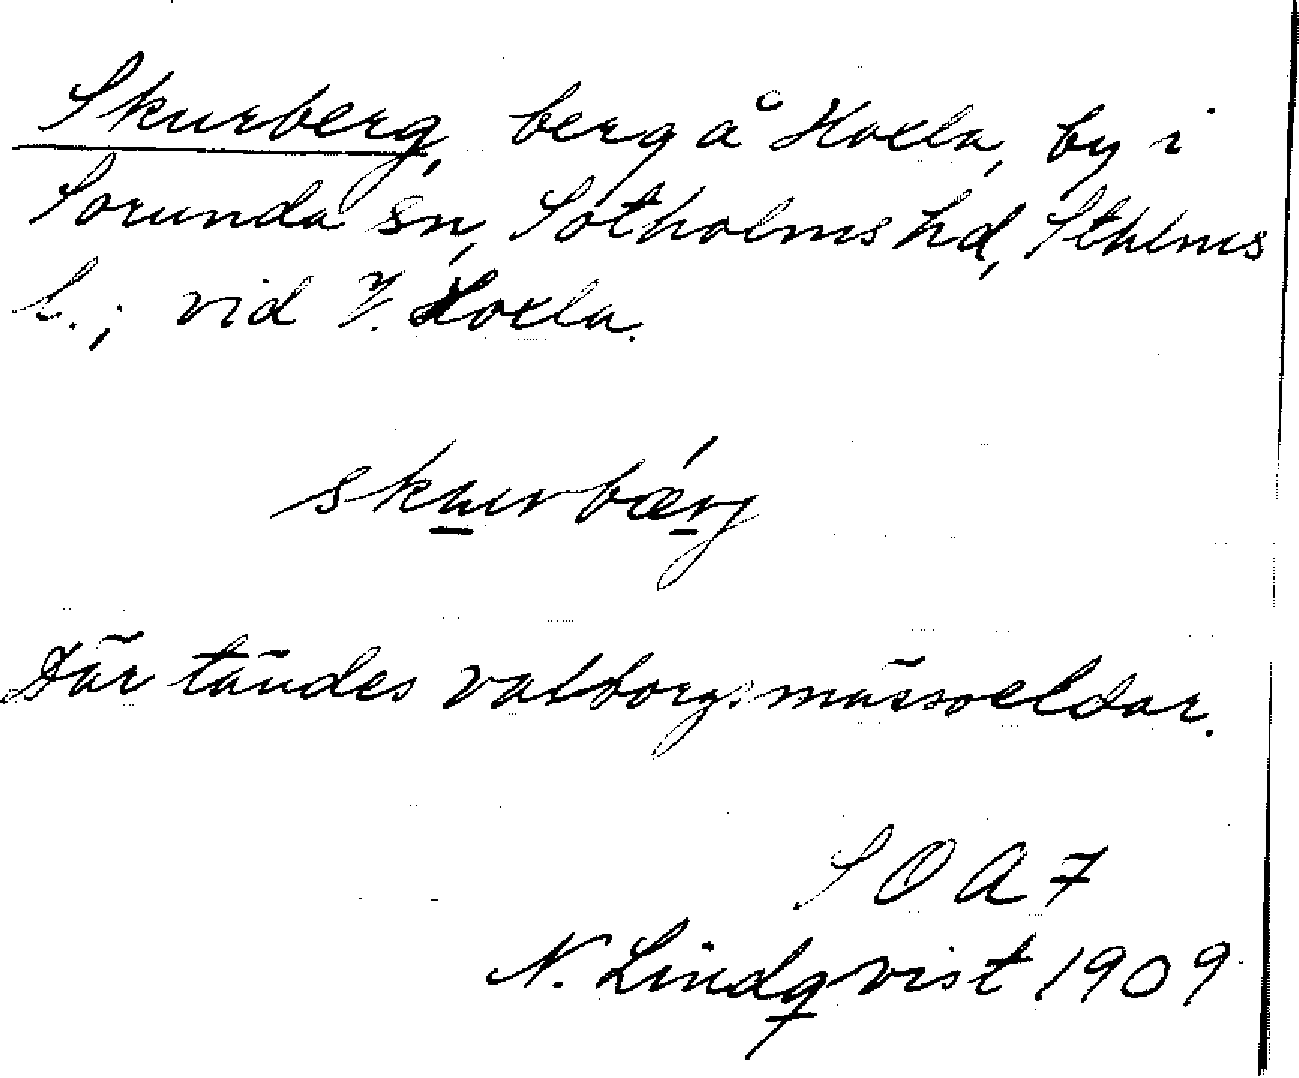 Skurberg, berg å Hoxla, by i
Sorunda sn, Sotholms hd, Sthlms
l.; vid V. Hoxla.
skuurbærj
Där tändes valborgsmässoeldar.
SOA 7
N. Lindqvist 1909